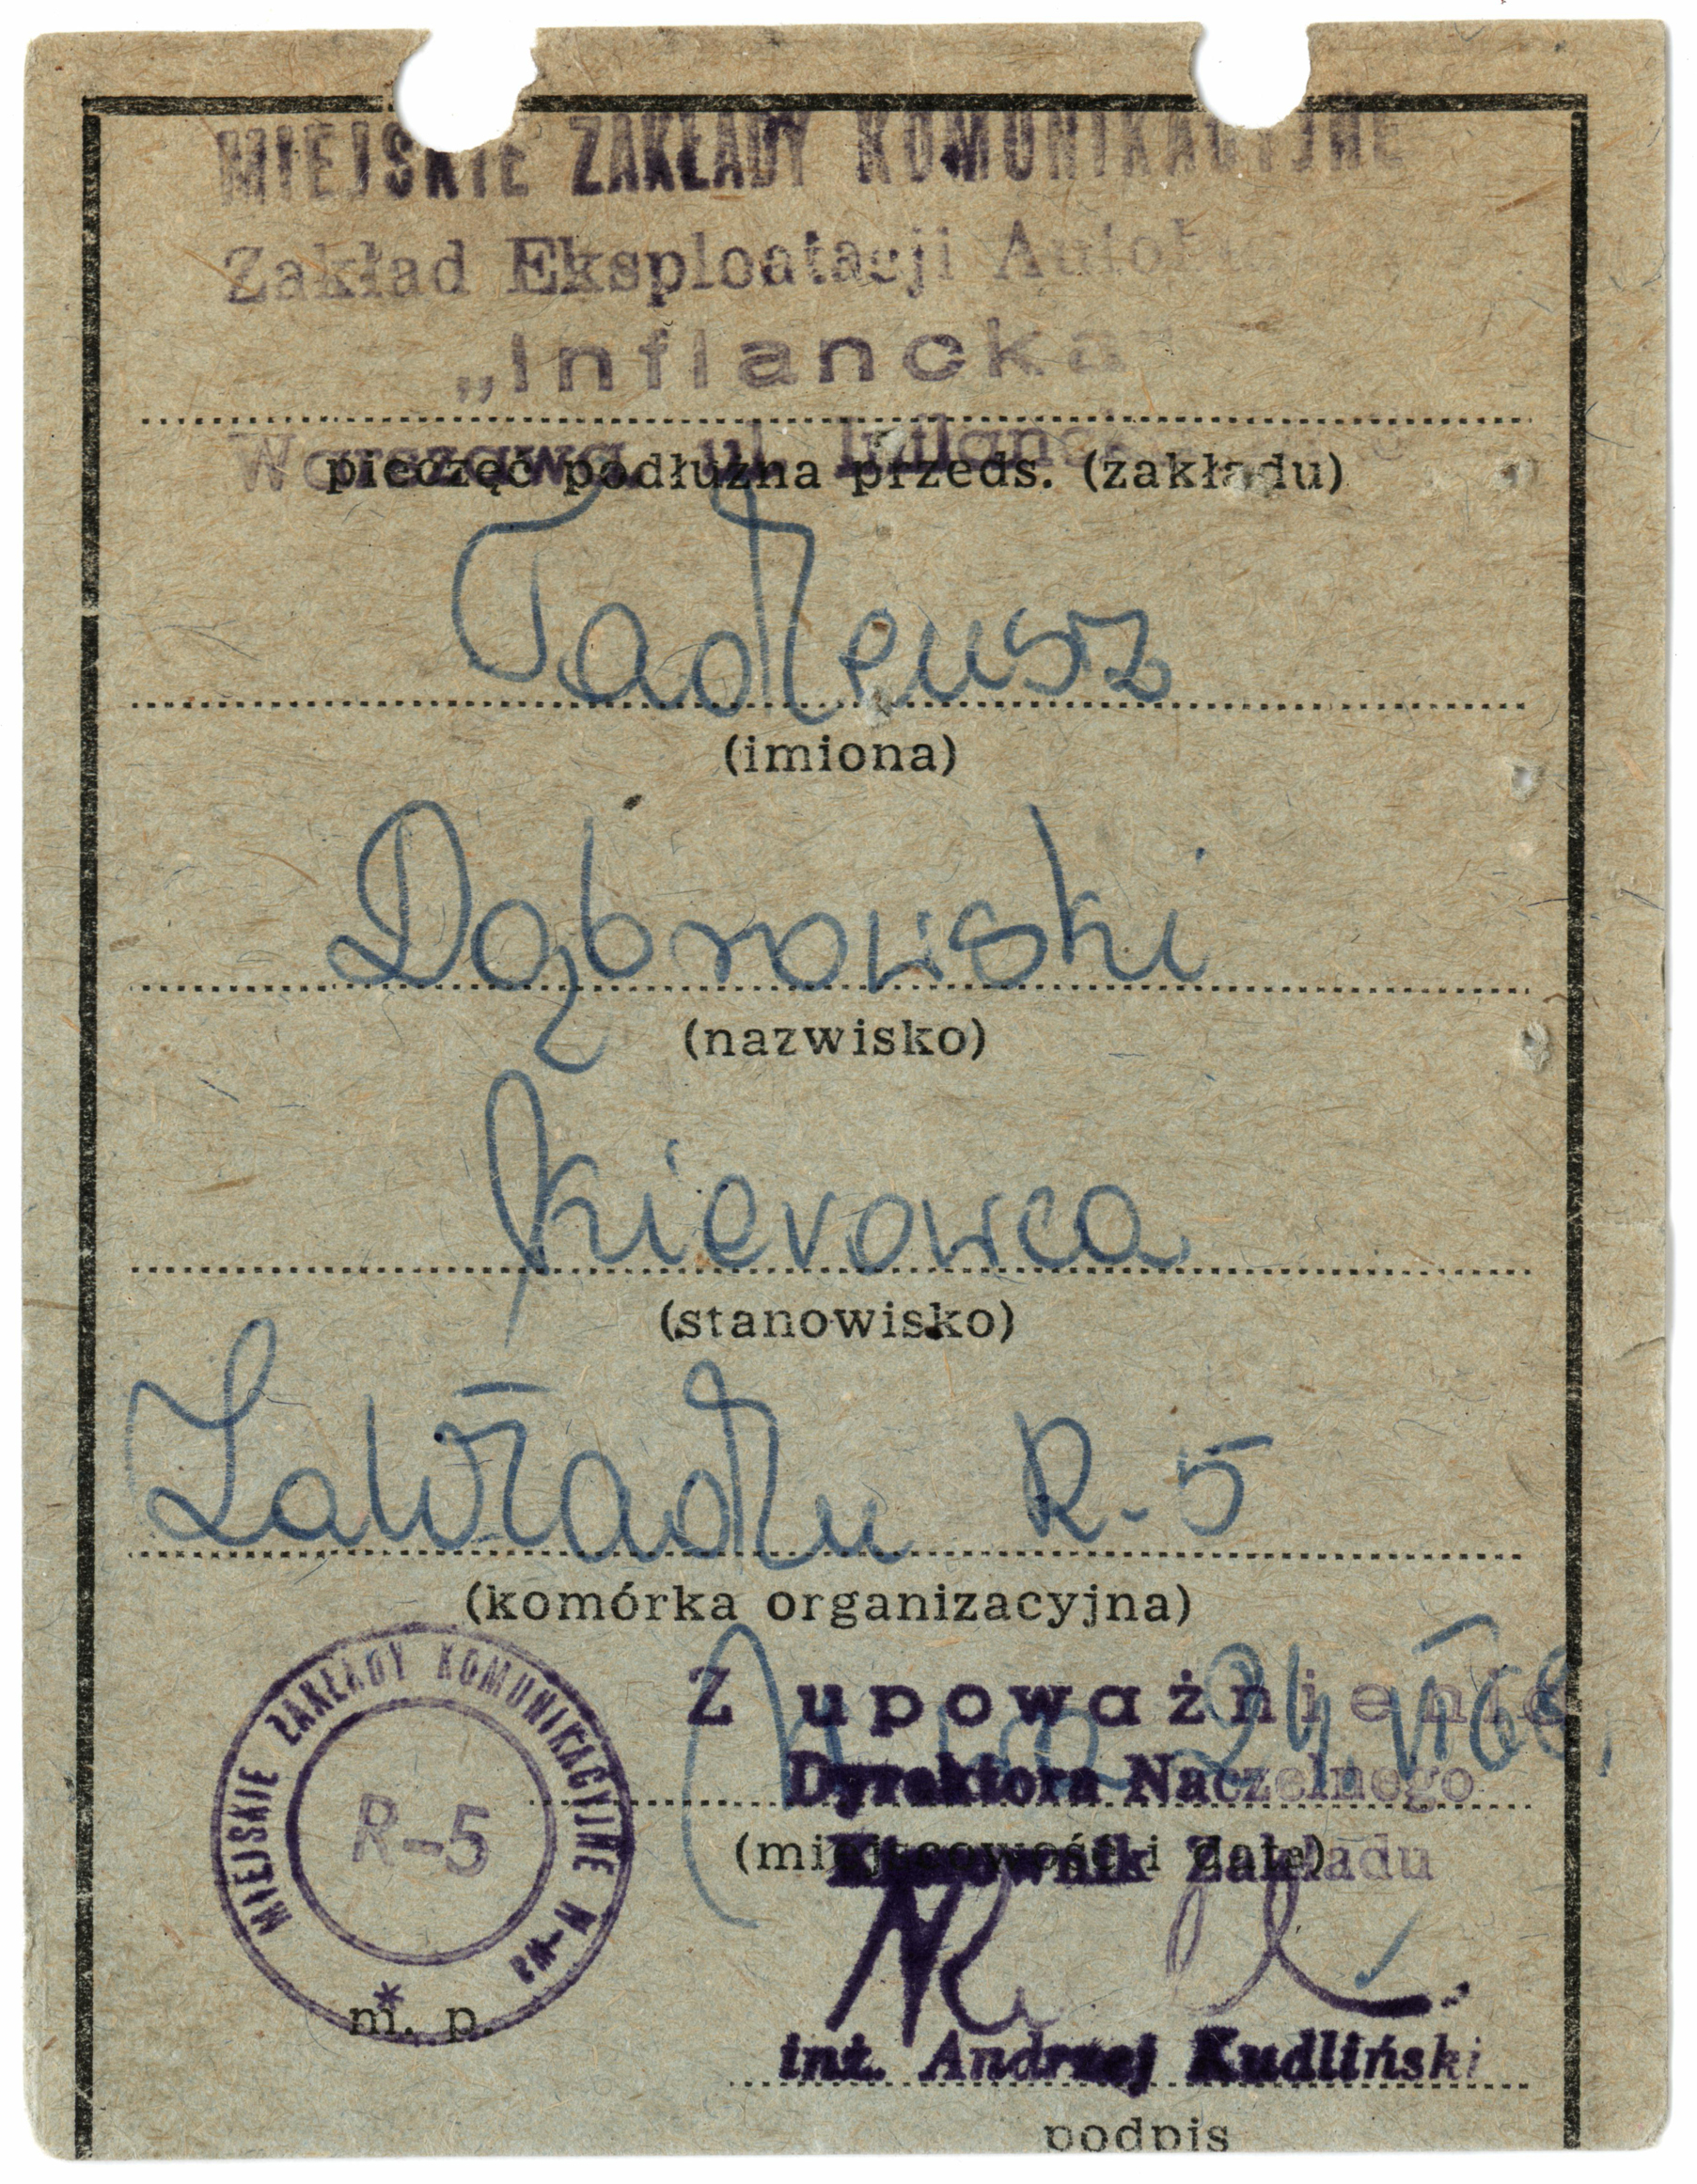 MIEJSKIE ZAKŁADY KOMUNIKACYJNE
Zakład Eksploatacji
„Inflancka"
Warszawa, ul.
pieczęć podłużna przeds. (zakładu)
Tadeusz
(imiona)
Dąbrowski
(nazwisko)
Kierowca
(stanowisko)
Zakładu R-5
(komórka organizacyjna)
Z upoważnienia
24 VI 68.
Dyrektora Naczelnego
(miejscowość i data)
Kierownik Zakładu
MIEJSKIE ZAKŁADY KOMUNIKACYJNE
R-5
m. p.
inż. Andrzej Kudliński
podpis